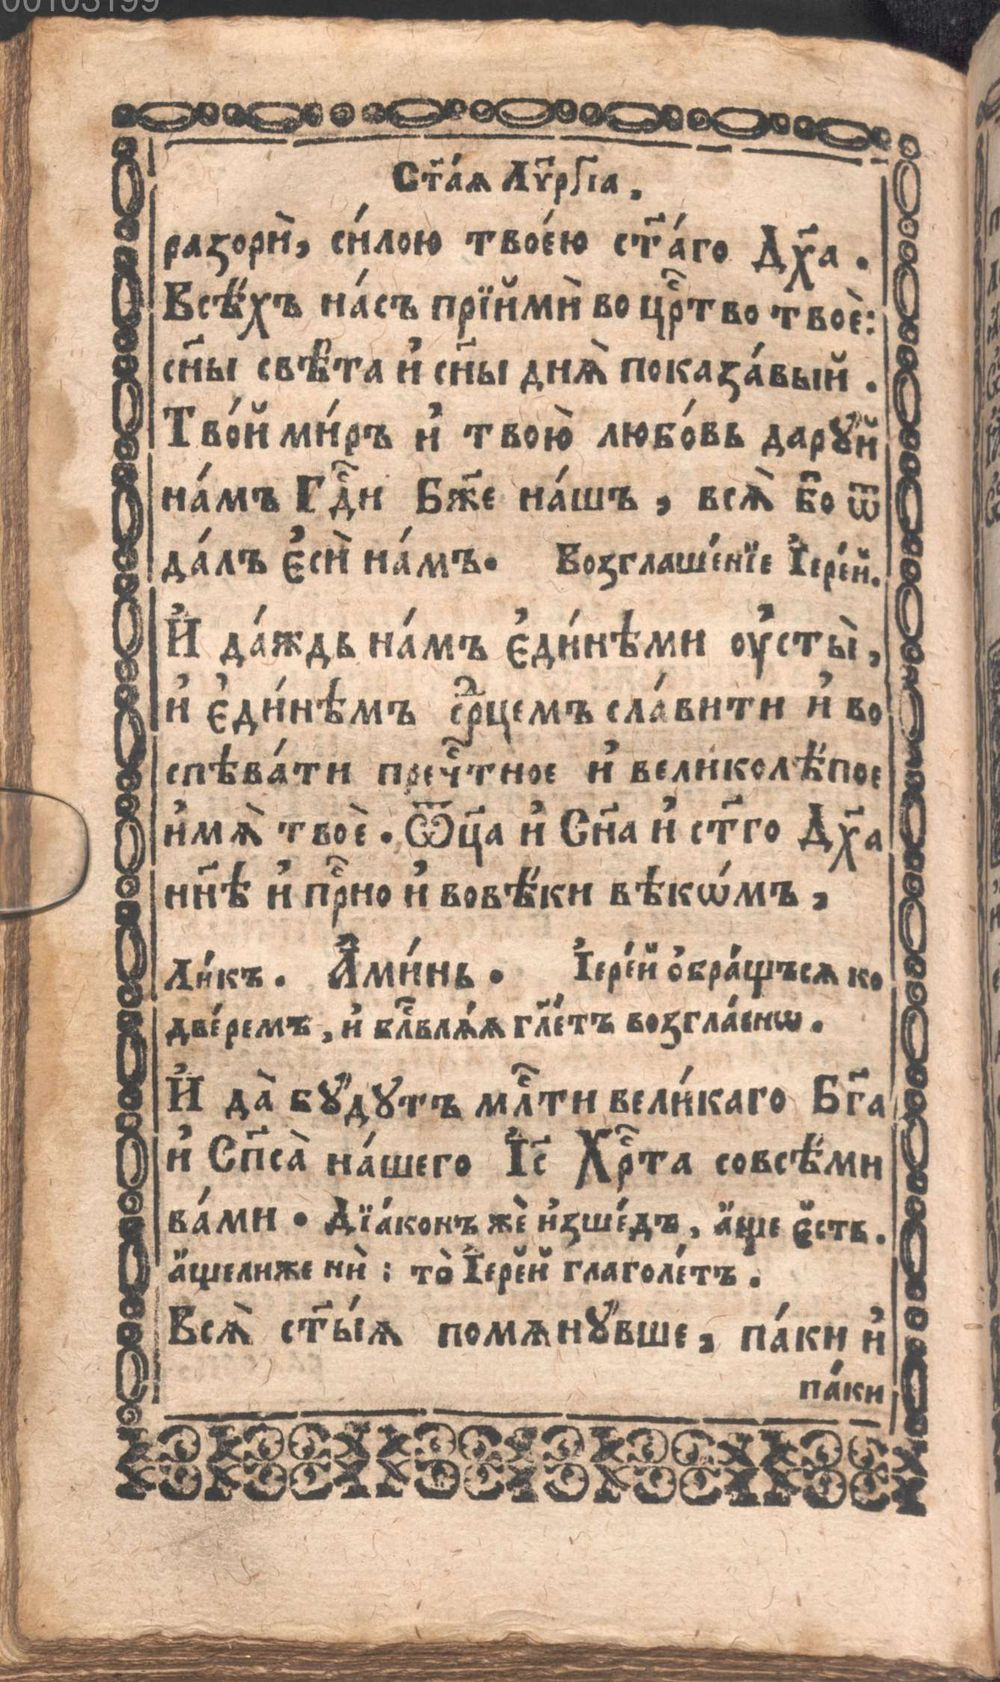 00103199
Ст҃а́ѧ Лѵ҃ргі́а.
разорѝ, си́лою твое́ю ст҃а́го Дх҃а.
Всѣ́хъ на́съ прїймѝ во цр҃тво твоѐ:
сн҃ы свѣ́та и҆ сн҃ы днѧ̀ показа́вый.
Тво́й ми́ръ и҆ твою̀ любо́вь дарꙋ́й
на́мъ Гдⷭ҇и Бж҃е на́шъ, всѧ̀ бо ѿ
да́лъ є҆сѝ на́мъ. Возглаше́нїе І҆ере́й.
И҆ да́ждь на́мъ є҆ди́нѣми ᲂу҆сты̀,
и҆ є҆ди́нѣмъ ср҃цемъ сла́вити и҆ во
спѣва́ти пречⷭ҇тное и҆ великолѣ́пое
и҆мѧ̀ твоѐ. Ѿц҃а и҆ Сн҃а и҆ ст҃го Дх҃а
нн҃ѣ и҆ прⷭ҇но и҆ вовѣ́ки вѣкѡ́мъ,
Ли́къ. А҆ми́нь. І҆ере́й ѻ҆бра́щъсѧ ко
две́ремъ, и҆ блⷭ҇влѧ́ѧ гл҃етъ возгла́снѡ.
И҆ да̀ бꙋ́дꙋтъ млⷭ҇ти вели́каго Бг҃а
и҆ Сп҃са̀ на́шего І҆с҃ Хрⷭ҇та совсѣ́ми
ва́ми. Дїа́конъ жѐ и҆зше́дъ, а҆́ще є҆́сть.
а҆́щелиже нѝ: то̀ І҆ере́й глаголе́тъ.
Всѧ̀ ст҃ы́ѧ помѧнꙋ́вше, па́ки и҆
па́ки